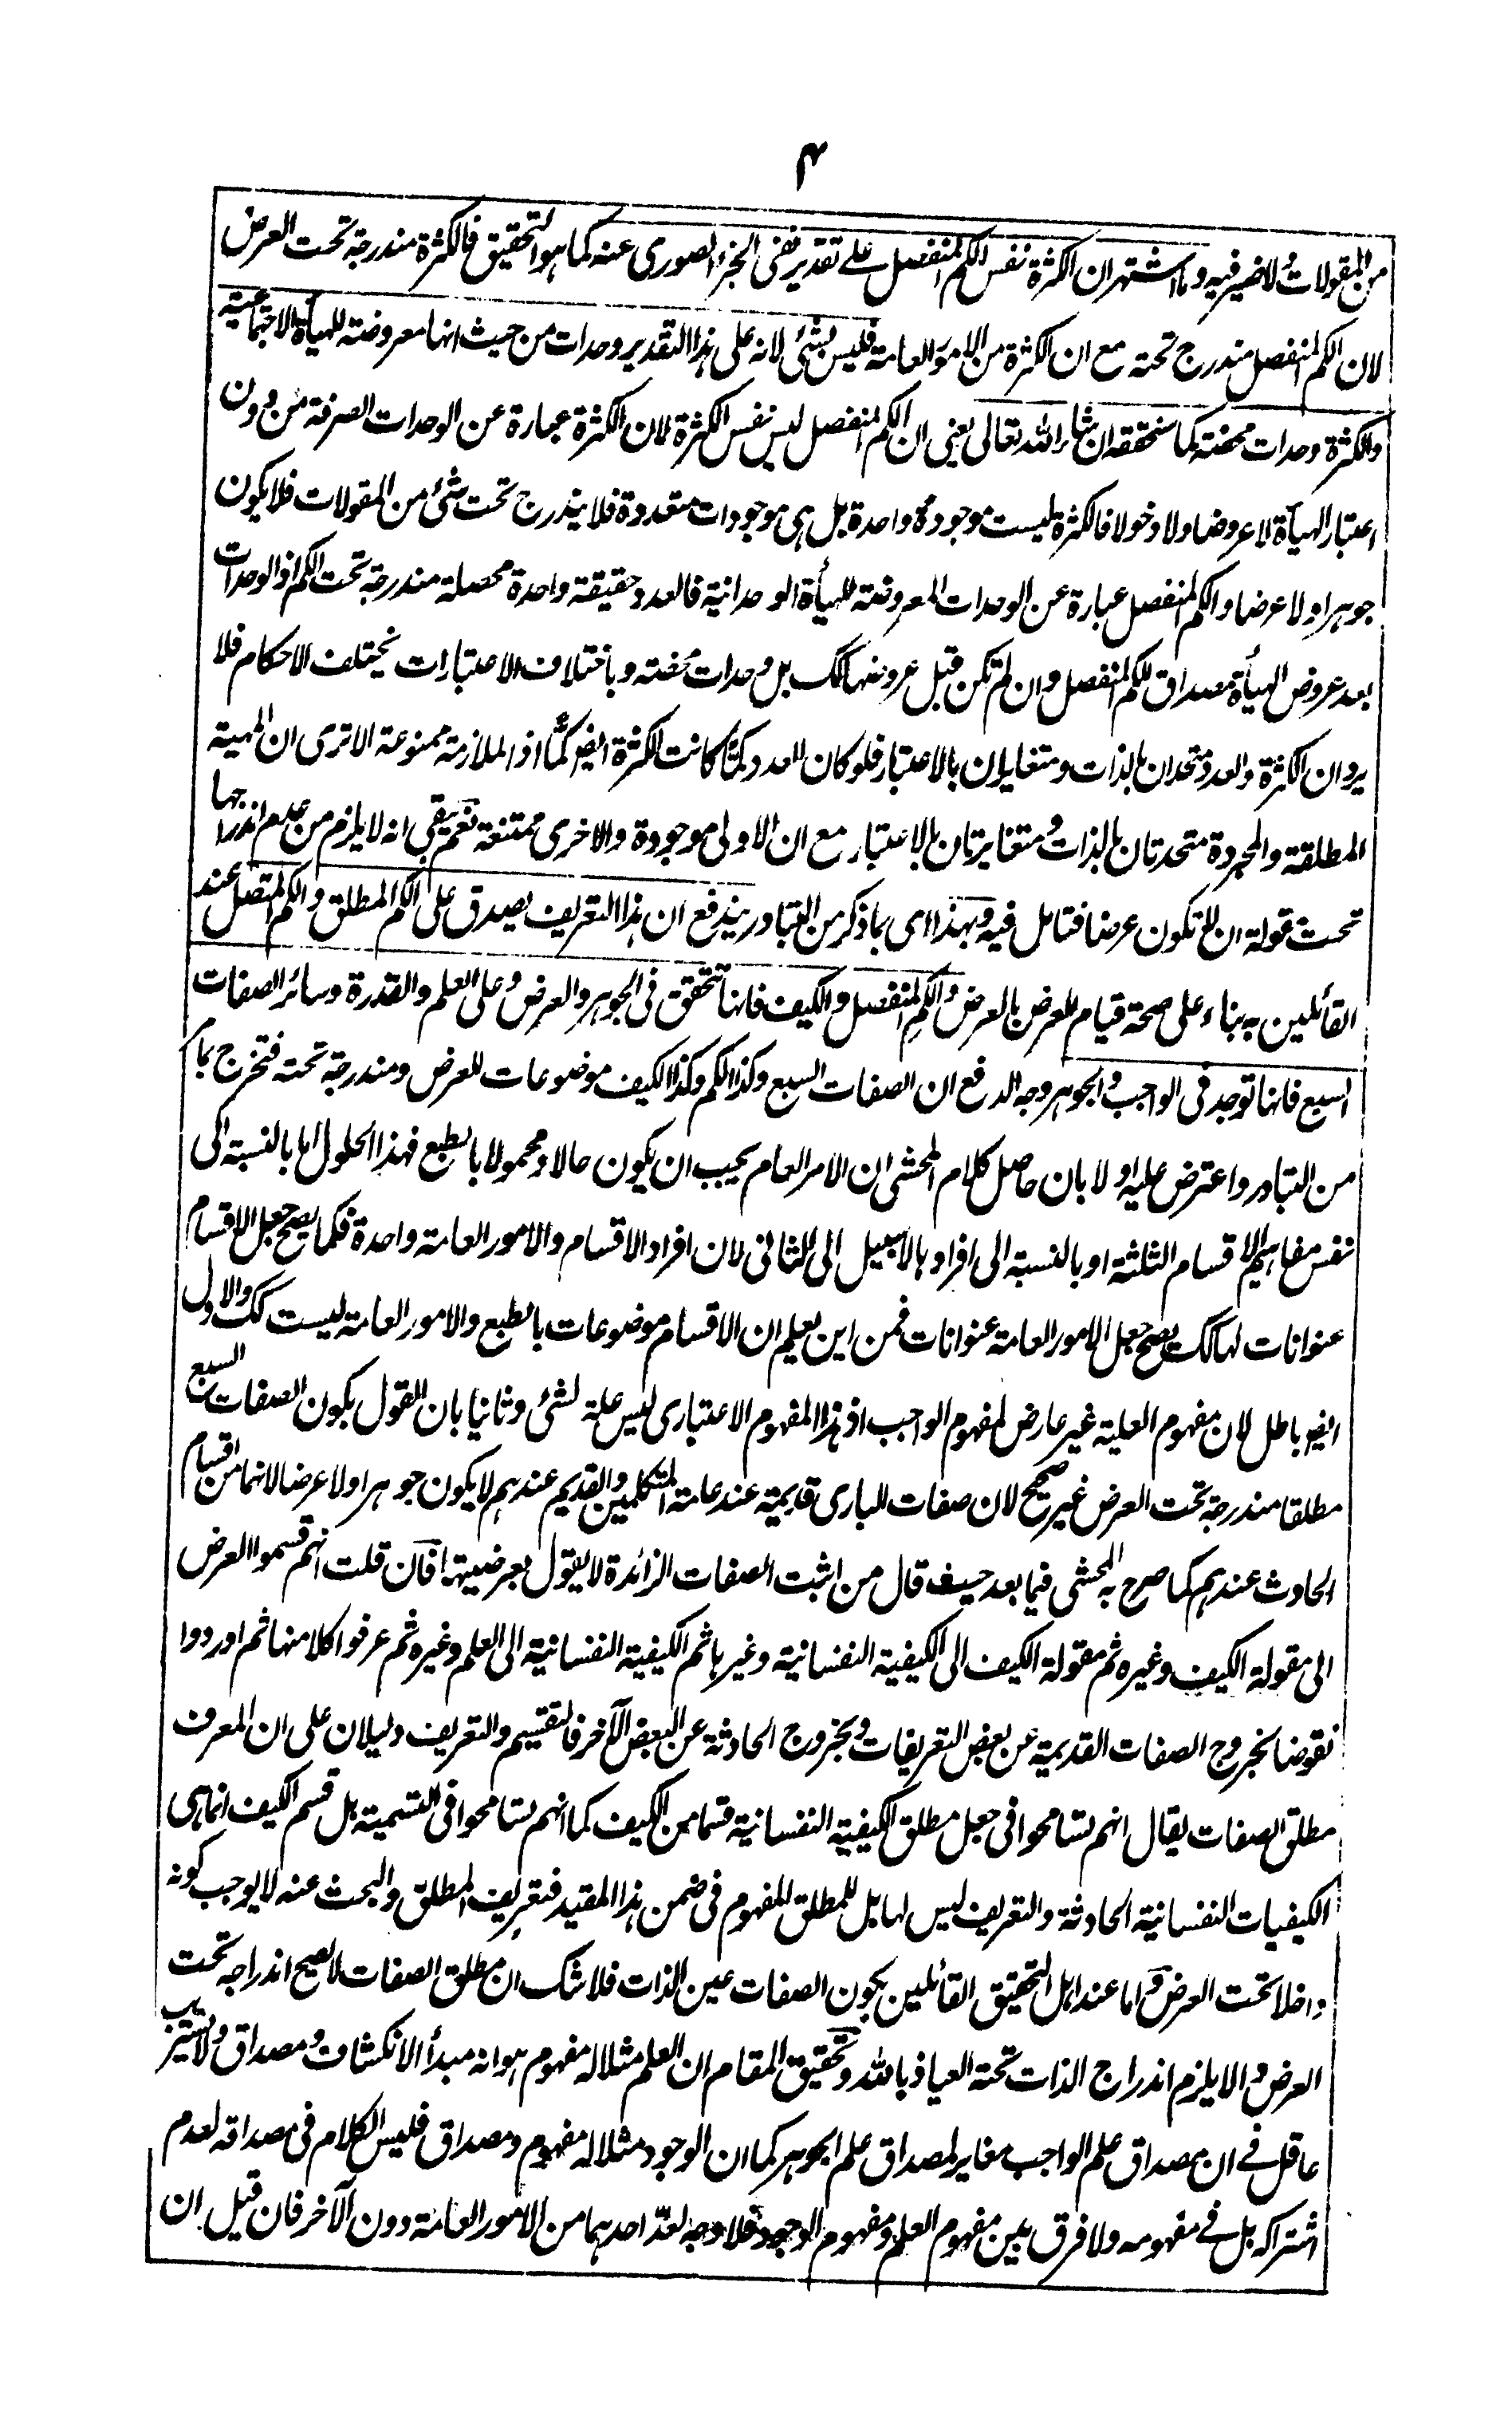 ۴
من المقولات ولا ضير فيه وما اشتهر ان الكثرة نفس الكم المنفصل على تقدير نفى الجزء الصورى عنه كما هو التحقيق فالكثرة مندرجة تحت العرض
لان الكم المنفصل مندرج تحته مع ان الكثرة من الامور العامة فليس بشئ لانه على هذا التقدير وحدات من حيث انها معروضة للهيأة الاجتماعية
والكثرة وحدات محضة كما سنحققه ان شاء الله تعالى يعنى ان الكم المنفصل ليس نفس الكثرة لان الكثرة عبارة عن الوحدات الصرفة من دون
اعتبار الهيأة لا عروضا ولا دخولا فالكثرة ليست موجودة واحدة بل هى موجودات متعددة فلا يندرج تحت شئ من المقولات فلا يكون
جوهرا ولا عرضا والكم المنفصل عبارة عن الوحدات المعروضة للهيأة الوحدانية فالعدد حقيقة واحدة محصلة مندرجة تحت الكم اذ الوحدات
بعد عروض الهيأة مصداق للكم المنفصل وان لم تكن قبل عروضها كك بل وحدات محضة وباختلاف الاعتبارات يختلف الاحكام فلا
يرد ان الكثرة والعدد متحدان بالذات ومتغايران بالاعتبار فلو كان العدد كمًّا كانت الكثرة ايضر كمًّا اذ الملازمة ممنوعة الا ترى ان المهية
المطلقة والمجردة متحدتان بالذات ومتغايرتان بالاعتبار مع ان الاولى موجودة والاخرى ممتنعة نعم يبقى انه لا يلزم من عدم اندراجها
تحت قولة ان لا تكون عرضا فتامل فيه وبهذا اى بما ذكر من التبادر يندفع ان هذا التعريف يصدق على الكم المطلق والكم المتصل عند
القائلين به بناء على صحة قيام العرض بالعرض والكم المنفصل والكيف فانها تتحقق فى الجوهر والعرض وعلى العلم والقدرة وسائر الصفات
السبع فانها توجد فى الواجب والجوهر وجه الدفع ان الصفات السبع وكذا الكم وكذا الكيف موضوعات للعرض ومندرجة تحته فتخرج بما
من التبادر واعترض عليه اولا بان حاصل كلام المحشى ان الامر العام يجب ان يكون حالا ومحمولا بالطبع فهذا الحلول اما بالنسبة الى
نفس مفاهيم الاقسام الثلثة او بالنسبة الى افرادها لا سبيل الى الثانى لان افراد الاقسام والامور العامة واحدة فكما يصح جعل الاقسام
عنوانات لها كك يصح جعل الامور العامة عنوانات فمن اين يعلم ان الاقسام موضوعات بالطبع والامور العامة ليست كك والاول
ايضر باطل لان مفهوم العلية غير عارض لمفهوم الواجب اذ هذا المفهوم الاعتبارى ليس علة لشئ وثانيا بان القول بكون الصفات السبع
مطلقا مندرجة تحت العرض غير صحيح لان صفات البارى قديمة عند عامة المتكلمين والقديم عندهم لا يكون جوهرا ولا عرضا لانهما من اقسام
الحادث عندهم كما صرح به المحشى فيما بعد حيث قال من اثبت الصفات الزائدة لا يقول بعرضيتها فان قلت انهم قسموا العرض
الى مقولة الكيف وغيره ثم مقولة الكيف الى الكيفية النفسانية وغيرها ثم الكيفية النفسانية الى العلم وغيره ثم عرفوا كلا منها ثم اوردوا
نقوضا بخروج الصفات القديمة عن بعض التعريفات وبخروج الحادثة عن البعض الآخر فالتقسيم والتعريف دليلان على ان المعرف
مطلق الصفات يقال انهم تسامحوا فى جعل مطلق الكيفية النفسانية قسما من الكيف كما انهم تسامحوا فى التسمية بل قسم الكيف انما هى
الكيفيات النفسانية الحادثة والتعريف ليس لها بل للمطلق المفهوم فى ضمن هذا المقيد فتعريف المطلق والبحث عنه لا يوجب كونه
داخلا تحت العرض واما عند اهل التحقيق القائلين بكون الصفات عين الذات فلا شك ان مطلق الصفات لا يصح اندراجه تحت
العرض والا يلزم اندراج الذات تحته العياذ بالله وتحقيق المقام ان العلم مثلا له مفهوم هو انه مبدأ الانكشاف ومصداق ولا يستريب
عاقل فے ان مصداق علم الواجب مغاير لمصداق علم الجوهر كما ان الوجود مثلا له مفهوم ومصداق فليس الكلام فى مصداقه لعدم
اشتراكه بل فے مفهومه ولا فرق بين مفهوم العلم ومفهوم الوجود فلا وجه لعدّ احدهما من الامور العامة دون الآخر فان قيل ان